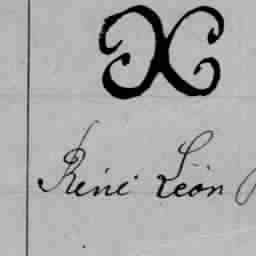 René Léon